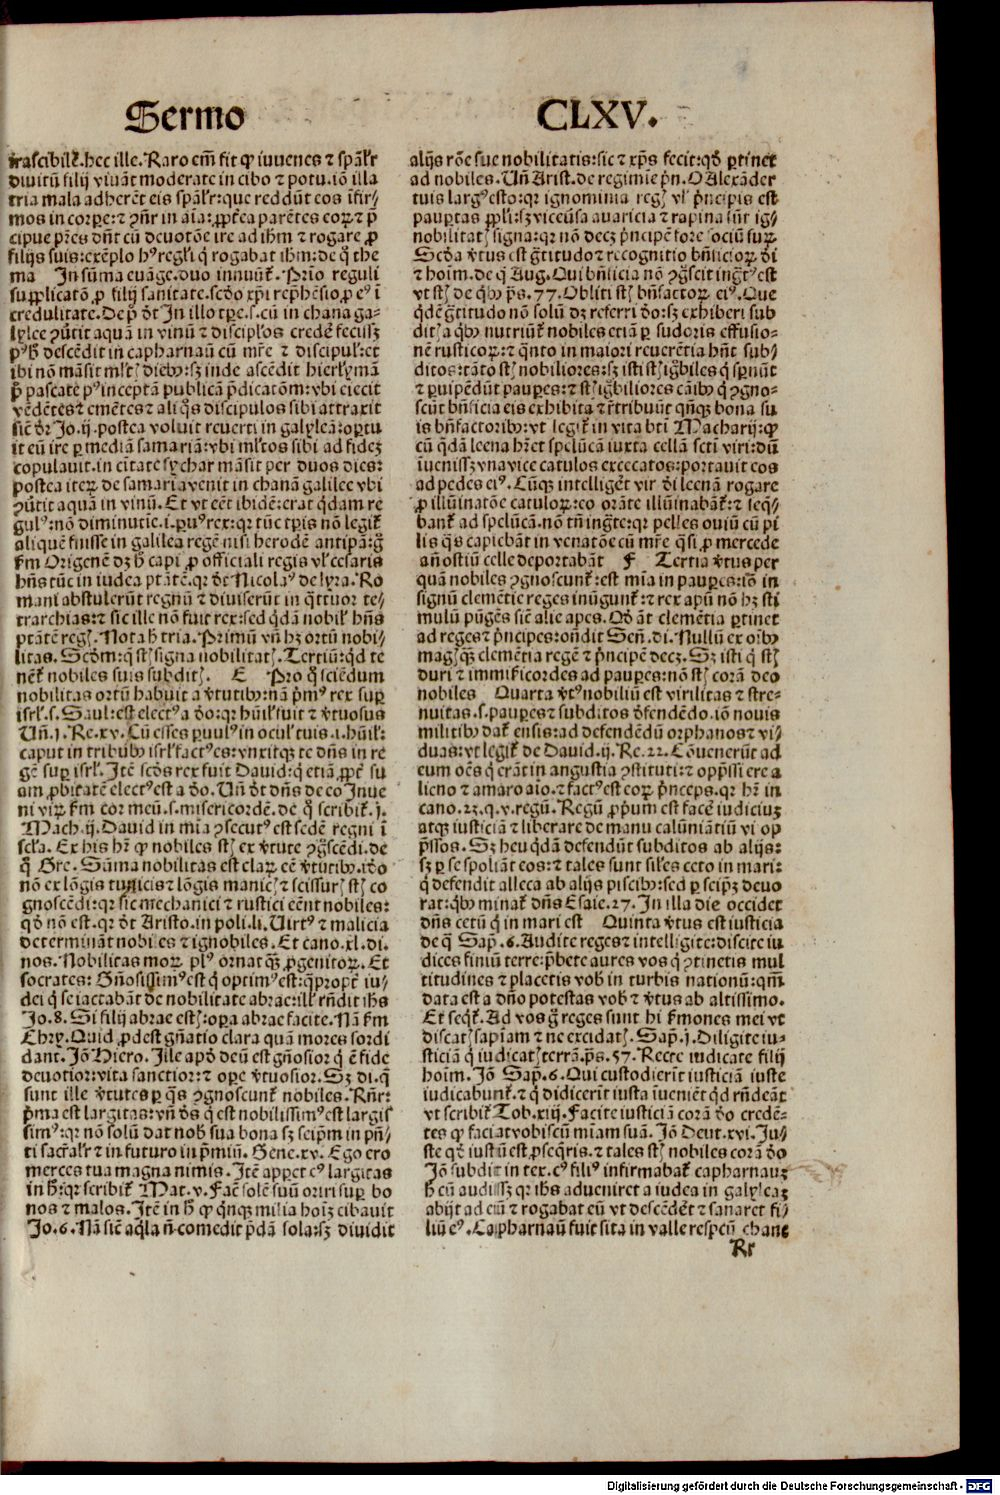 Sermo CLXV.
irascibilẽ. hec ille. Raro em̃ fit ꝙ iuuenes ⁊ spãlr̃
diuitũ filij viuãt moderate in cibo ⁊ potu. iõ illa
tria mala adherẽt eis spãlr̃: que reddũt eos ĩfir⸗
mos in corꝑe: ⁊ ꝯñr in aĩa: ꝓptea parẽtes coꝝ ⁊ p̃
cipue pr̃es dñt cũ deuotõe ire ad ihm̃ ⁊ rogare ꝓ
filijs suis: exẽplo hꝰ regl̃i q̃ rogabat ihm̃: de q̃ the
ma In sũma euãge. duo innuũt̃. Prĩo reguli
supplicatõ ꝓ filij sanitate. scd̃o xp̃i rep̃hẽsio ꝓ eꝰ ĩ
credulitate. De p̃ d̃t In illo tp̃e. s. cũ in chana ga⸗
lylee ꝯũtit aquã in vinũ ⁊ discipl̃os credẽ fecissꝫ
pꝰ h̃ descẽdit in capharnaũ cũ mr̃e ⁊ discipul̃: et
ibi nõ mãsit ml̃tꝭ diebꝰ: sꝫ inde ascẽdit hierl̃ymã
p̃ pascate pꝰ incepta publicã p̃dicatõm: vbi eiecit
vẽdẽtes ⁊ emẽtes ⁊ aliq̃s discipulos sibi attraxit
sic̃ d̃r Jo. ij. postea voluit reuerti in galyleã: oꝑtu
it eũ ire ꝑ mediã samariã: vbi ml̃tos sibi ad fideꝫ
copulauit. in cĩtate sychar mãsit per duos dies:
postea iteꝝ de samaria venit in chanã galilee vbi
ꝯũtit aquã in vinũ. Et vt eẽt ibidẽ: erat q̃dam re
gulꝰ: nõ diminutiẽ. i. ꝑuꝰ rex: qꝛ tũc tp̃is nõ legit̃
aliquẽ fuisse in galilea regẽ nisi herodẽ antipã: g̃
ẜm Origenẽ dꝫ h̃ capi ꝓ officiali regis vl̃ cesaris
hñs tũc in iudea ptãtẽ. qꝛ d̃t Nicolaꝰ de lyra. Ro
mani abstulerũt regnũ ⁊ diuiserũt in q̃ttuor te⸗
trarchias: ⁊ sic ille nõ fuit rex: sed q̃dã nobil̃ hñs
ptãtẽ regꝭ. Nota h̃ tria. Primũ vñ hꝫ ortũ nobi⸗
litas. Scd̃m: q̃ st̃ signa nobilitatꝭ. Tertiũ: qd̃ te
nẽt̃ nobiles suis subditꝭ. E Pro q̃ sciẽdum
nobilitas ortũ habuit a v̾tutibꝰ: nã p̃mꝰ rex suꝑ
isrl̃. s. Saul: est electꝰ a d̃o: qꝛ hũil̃ fuit ⁊ v̾tuosus
Vñ. j. Re. xv. Cũ esses ꝑuulꝰ in ocul̃ tuis. i. hũil̃:
caput in tribubꝰ isrl̃ factꝰ es: vnxitqꝫ te dñs in re
gẽ suꝑ isrl̃. Itẽ scd̃s rex fuit Dauid: q̃ etiã ꝓpt̃ su
am ꝓbitatẽ electꝰ est a d̃o. Vñ d̃t dñs de eo Inue
ni virũ ẜm cor meũ. s. misericordẽ. de q̃ scribit̃. j.
Mach. ij. Dauid in mĩa ꝯsecutꝰ est sedẽ regni ĩ
scl̃a. Ex his hr̃ ꝙ nobiles st̃ ex v̾tute ꝯg̃scẽdi. de
q̃ Gre. Sũma nobilitas est claꝝ eẽ v̾tutibꝰ. id̃o
nõ ex lõgis tunicis ⁊ lõgis manicꝭ ⁊ scissurꝭ st̃ co
gnoscẽdi: qꝛ sic mechanici ⁊ rustici eẽnt nobiles:
qd̃ nõ est. qꝛ d̃t Aristo. in poli. li. Uirtꝰ ⁊ malicia
determinãt nobiles ⁊ ignobiles. Et cano. xl. di.
nos. Nobilitas moꝝ plꝰ ornat q̃ꝫ ꝓgenitoꝝ. Et
socrates: Gñosissimꝰ est q̃ optimꝰ est: q̃propt̃ iu⸗
dei q̃ se iactabãt de nobilitate abrae: ill̃ rñdit ihs
Jo. 8. Si filij abrae estꝭ: oꝑa abrae facite. Nã ẜm
Chrỹ. Quid ꝓdest gñatio clara quã mores sordi
dant. Jõ Hiero. Ille apd̃ deũ est gñosior q̃ ẽ fide
deuotior: vita sanctior: ⁊ oꝑe v̾tuosior. Sꝫ di. q̃
sunt ille v̾tutes ꝑ q̃s ꝯgnoscunt̃ nobiles. Rñr:
p̃ma est largitas: vñ d̃s q̃ est nobilissimꝰ est largis
simꝰ: qꝛ nõ solũ dat nob̃ sua bona sꝫ seip̃m in p̃ñ⸗
ti sacr̃alr̃ ⁊ in futuro in p̃miũ. Gene. xv. Ego ero
merces tua magna nimis. Itẽ apꝑet eꝰ largitas
in h̃: qꝛ scribit̃ Mat. v. Facẽ solẽ suũ oriri suꝑ bo
nos ⁊ malos. Itẽ in h̃ ꝙ q̃nqꝫ milia hoĩꝫ cibauit
Jo. 6. Nã sic̃ aq̃la ñ comedit p̃dã sola: sꝫ diuidit
alijs rõe sue nobilitatis: sic ⁊ xp̃s fecit: qd̃ ꝑtinet
ad nobiles. Vñ Arist. de regimie p̃n. O Alexãder
tuis largꝰ esto: qꝛ ignominia regꝭ vl̃ p̃ncipis est
pauꝑtas ꝓpl̃i: sꝫ viceũsa auaricia ⁊ rapina sũt ig⸗
nobilitatꝭ signa: qꝛ nõ decꝫ p̃ncipẽ fore sociũ suꝝ.
Scd̃a v̾tus est g̃titudo ⁊ recognitio bñficioꝝ d̃i
⁊ hoĩm. de q̃ Aug. Qui bñficia nõ ꝯg̃scit ing̃tꝰ est
vt st̃ de q̃bꝰ p̃s. 77. Obliti st̃ bñfactoꝝ eiꝰ. Que
q̃dẽ g̃titudo nõ solũ dꝫ referri d̃o: sꝫ exhiberi sub
ditꝭ a q̃bꝰ nutriũt̃ nobiles etiã ꝑ sudoris effusio⸗
nẽ rusticoꝝ: ⁊ q̃nto in maiori reuerẽtia hñt sub⸗
ditos: tãto st̃ nobiliores: sꝫ isti st̃ ig̃biles q̃ sp̃nũt
⁊ ꝑuipẽdũt pauꝑes: ⁊ st̃ ig̃biliores cãibꝰ q̃ ꝯgno⸗
scũt bñficia eis exhibita ⁊ r̃tribuũt qñqꝫ bona su
is bñfactoribꝰ: vt legit̃ in vita bti Macharij: ꝙ
cũ q̃dã leena hr̃et spelũcã iuxta cellã scti viri: dũ
iuenissꝫ vna vice catulos excecatos: portauit eos
ad pedes eiꝰ. Cũqꝫ intelliget̃ vir d̃i leenã rogare
ꝓ illũinatõe catuloꝝ: eo orãte illũinabãt̃: ⁊ seq̃⸗
bant̃ ad spelũcã. nõ tñ ing̃te: qꝛ pelles ouiũ cũ pi
lis q̃s capiebãt in venatõe cũ mr̃e q̃si ꝓ mercede
añ ostiũ celle deportabãt F Tertia v̾tus per
quã nobiles ꝯgnoscunt̃: est mĩa in pauꝑes: iõ in
signũ clemẽtie reges inũgunt̃: ⁊ rex apũ nõ hꝫ sti
mulũ pũgẽs sic̃ alie apes. Qd̃ ãt clemẽtia ꝑtinet
ad reges ⁊ p̃ncipes: oñdit Señ. di. Nullũ ex oĩbꝰ
magꝭ q̃ꝫ clemẽtia regẽ ⁊ p̃ncipẽ decꝫ. Sꝫ isti q̃ st̃
duri ⁊ immisericordes ad pauꝑes: nõ st̃ corã deo
nobiles Quarta v̾tꝰ nobiliũ est virilitas ⁊ stre⸗
nuitas. s. pauꝑes ⁊ subditos d̃fendẽdo. iõ nouis
militibꝰ dat̃ ensis: ad defendẽdũ orphanos ⁊ vi⸗
duas: vt legit̃ de Dauid. ij. Re. 22. Cõuenerũt ad
eum oẽs q̃ erãt in angustia ꝯstituti: ⁊ opp̃ssi ere a
lieno ⁊ amaro aĩo. ⁊ factꝰ est eoꝝ p̃nceps. qꝛ hr̃ in
cano. 23. q. v. regũ. Regũ ꝓp̃um est facẽ iudiciuꝫ
atqꝫ iusticiã ⁊ liberare de manu calũniãtiũ vi op
p̃ssos. Sꝫ heu q̃dã defendũt subditos ab alijs:
sꝫ ꝑ se spoliãt eos: ⁊ tales sunt sil̃es ceto in mari:
q̃ defendit alleca ab alijs piscibꝰ: sed ꝑ seip̃ꝫ deuo
rat: q̃bꝰ minat̃ dñs Esaie. 27. In illa die occidet
dñs cetũ q̃ in mari est Quinta v̾tus est iusticia
de q̃ Sap̃. 6. Audite reges ⁊ intelligite: discite iu
dices finiũ terre: p̃bete aures vos q̃ ꝯtinetis mul
titudines ⁊ placetis vob̃ in turbis nationũ: qm̃
data est a dño potestas vob̃ ⁊ v̾tus ab altissimo.
Et seq̃t̃. Ad vos g̃ reges sunt hi ẜmones mei vt
discatꝭ sapĩam ⁊ ne excidatꝭ. Sap̃. j. Diligite iu⸗
sticiã q̃ iudicatꝭ terrã. p̃s. 57. Recte iudicate filij
hoĩm. Jõ Sap̃. 6. Qui custodierĩt iusticiã iuste
iudicabunt̃. ⁊ q̃ didicerĩt iusta iueniẽt qd̃ rñdeãt
vt scribit̃ Tob. xiij. Facite iusticiã corã d̃o credẽ⸗
tes ꝙ faciat vobiscũ mĩam suã. Jõ Deut. xvi. Ju⸗
ste qd̃ iustũ est ꝓseq̃ris. ⁊ tales st̃ nobiles corã d̃o
Jõ subdit in tex. cꝰ filiꝰ infirmabat̃ capharnauꝫ
h̃ cũ audissꝫ qꝛ ihs adueniret a iudea in galyleaꝫ
abijt ad eũ ⁊ rogabat eũ vt descẽdẽt ⁊ sanaret fi⸗
liũ eꝰ. Capharnaũ fuit sita in valle respcũ chane
Rr
Digitalisierung gefördert durch die Deutsche Forschungsgemeinschaft - DFG